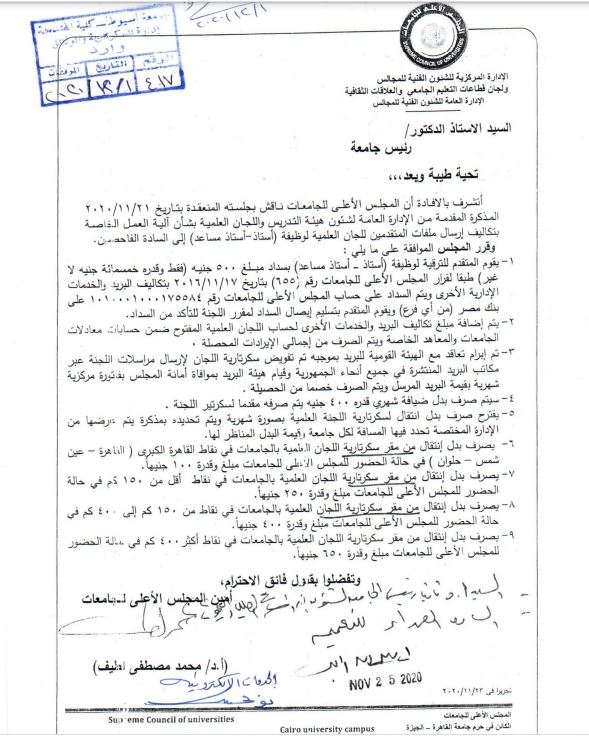 جامعة أسيوط - كلية الهندسة
وارد
الرقم التاريخ المرفقات
٤١٧
٢٠٢٠/١٢/١
المجلس الأعلى للجامعات
SUPREME COUNCIL OF UNIVERSITIES
الإدارة المركزية للشئون الفنية للمجالس
ولجان قطاعات التعليم الجامعي والعلاقات الثقافية
الإدارة العامة للشئون الفنية للمجالس
السيد الاستاذ الدكتور/
رئيس جامعة
تحية طيبة وبعد،،،
أتشرف بالافادة أن المجلس الأعلى للجامعات ناقش بجلسته المنعقدة بتاريخ ٢٠٢٠/١١/٢١
المذكرة المقدمة من الإدارة العامة لشئون هيئة التدريس واللجان العلمية بشأن آلية العمل الخاصة
بتكاليف إرسال ملفات المتقدمين للجان العلمية لوظيفة (أستاذ-أستاذ مساعد) إلى السادة الفاحصين.
وقرر المجلس الموافقة على ما يلي:
١- يقوم المتقدم للترقية لوظيفة (أستاذ – أستاذ مساعد) بسداد مبلغ ٥٠٠ جنيه (فقط وقدره خمسمائة جنيه لا
غير) طبقا لقرار المجلس الأعلى للجامعات رقم (٦٥٥) بتاريخ ٢٠١٦/١١/١٧ بتكاليف البريد والخدمات
الإدارية الأخرى ويتم السداد على حساب المجلس الأعلى للجامعات رقم
بنك مصر (من أي فرع) ويقوم المتقدم بتسليم إيصال السداد لمقرر اللجنة للتأكد من السداد.
٢- يتم إضافة مبلغ تكاليف البريد والخدمات الأخرى لحساب اللجان العلمية المفتوح ضمن حسابات معادلات
الجامعات والمعاهد الخاصة ويتم الصرف من إجمالي الإيرادات المحصلة .
٣- تم إبرام تعاقد مع الهيئة القومية للبريد بموجبه تم تفويض سكرتارية اللجان لإرسال مراسلات اللجنة عبر
مكاتب البريد المنتشرة في جميع أنحاء الجمهورية وقيام هيئة البريد بموافاة أمانة المجلس بفاتورة مركزية
شهرية بقيمة البريد المرسل ويتم الصرف خصما من الحصيلة .
٤- سيتم صرف بدل ضيافة شهري قدره ٤٠٠ جنيه يتم صرفه مقدما لسكرتير اللجنة .
٥- يقترح صرف بدل انتقال لسكرتارية اللجنة العلمية بصورة شهرية ويتم تحديده بمذكرة يتم عرضها من
الإدارة المختصة تحدد فيها المسافة لكل جامعة وقيمة البدل المناظر لها.
٦- يصرف بدل إنتقال من مقر سكرتارية اللجان العلمية بالجامعات في نقاط القاهرة الكبرى ( القاهرة – عين
شمس – حلوان ) في حالة الحضور للمجلس الأعلى للجامعات مبلغ وقدرة ١٠٠ جنيهاً.
٧- يصرف بدل إنتقال من مقر سكرتارية اللجان العلمية بالجامعات في نقاط أقل من ١٥٠ كم في حالة
الحضور للمجلس الأعلى للجامعات مبلغ وقدرة ٢٥٠ جنيهاً.
٨- يصرف بدل إنتقال من مقر سكرتارية اللجان العلمية بالجامعات في نقاط من ١٥٠ كم إلى ٤٠٠ كم في
حالة الحضور للمجلس الأعلى للجامعات مبلغ وقدرة ٤٠٠ جنيهاً.
٩- يصرف بدل إنتقال من مقر سكرتارية اللجان العلمية بالجامعات في نقاط أكثر ٤٠٠ كم في حالة الحضور
للمجلس الأعلى للجامعات مبلغ وقدرة ٦٥٠ جنيهاً.
وتفضلوا بقبول فائق الاحترام،
أمين المجلس الأعلى للجامعات
(أ.د/ محمد مصطفى لطيف)
NOV 25 2020
الخدمات الالكترونية
تحريرا في ٢٠٢٠/١١/٢٢
المجلس الأعلى للجامعات
الكائن في حرم جامعة القاهرة - الجيزة
Supreme Council of universities
Cairo university campus